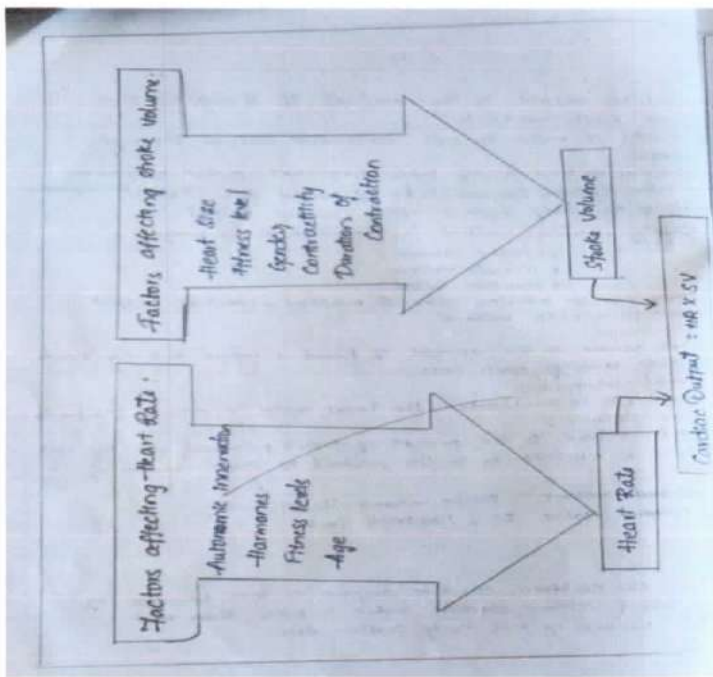 Factors affecting Heart Rate.
Autonomic Innervation
Harmones
Fitness levels
Age
Heart Rate
Factors affecting stroke volume.
Heart Size
Fitness level
Gender
Contractility
Duration of
Contraction
Stroke Volume
Cardiac Output : HR X SV